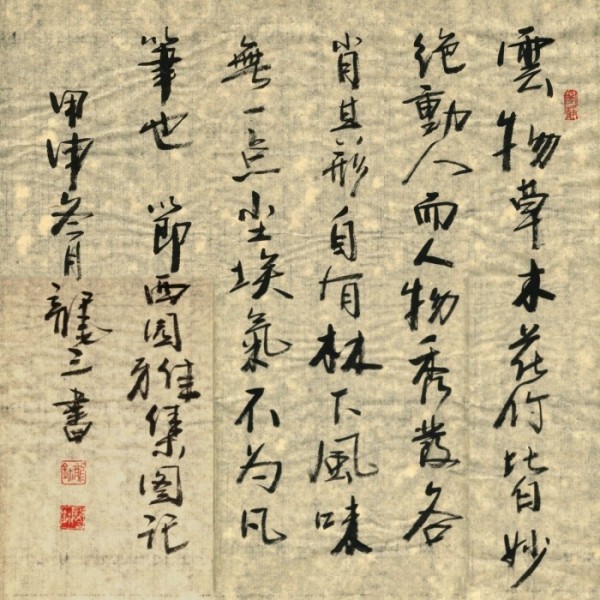 雲物草木花竹皆妙
絶動人而人物秀發各
肖其形自有林下風味
無一点尘埃氣不为凡
筆也 節西园雅集图记
甲申冬月龍三書